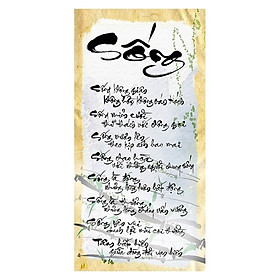 Sống
Sống không giận
không hờn không oán trách
Sống mỉm cười
thử thách chông gai
Sống vươn lên
theo kịp ánh ban mai
Sống chan hòa
với những người chung sống
Sống là động
nhưng lòng luôn bất động
Sống là thương
nhưng lòng chẳng vấn vương
Sống yên vui
danh lợi mãi coi thường
Tâm bất biến
giữa dòng đời vạn biến